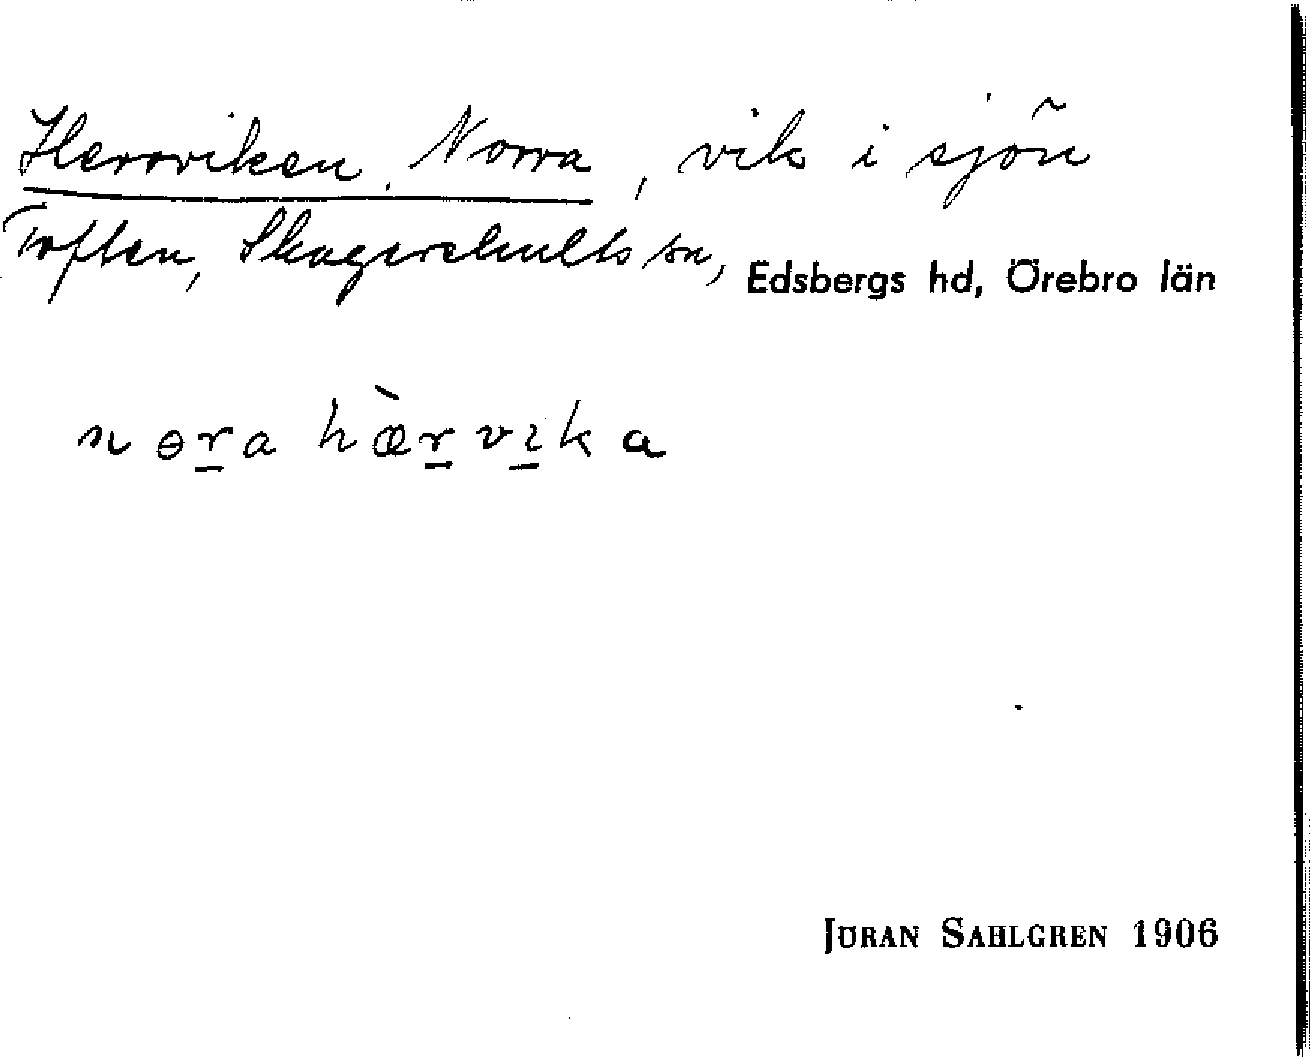 Herrviken, Norra, vik i sjön
Toften, Skagershults sn, Edsbergs hd, Örebro län
nɵr̲a hæ̀r̲vı̲ka
JÖRAN SAHLGREN 1906